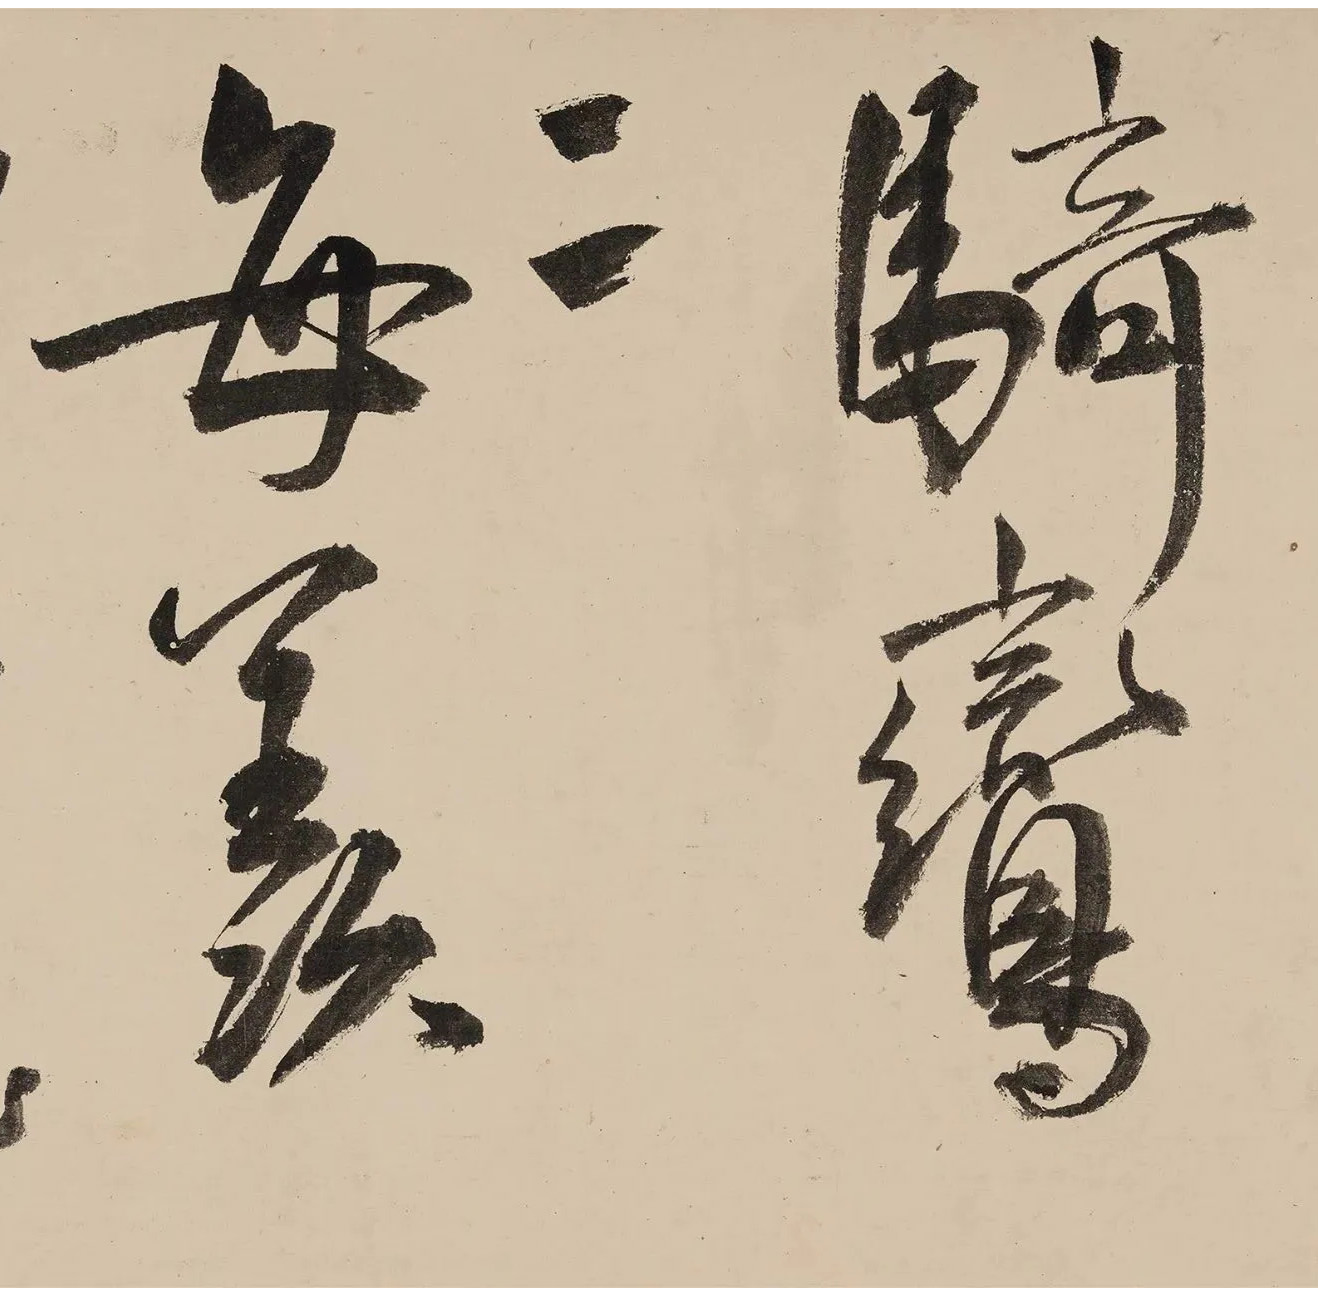 騎鸞
二
每羨